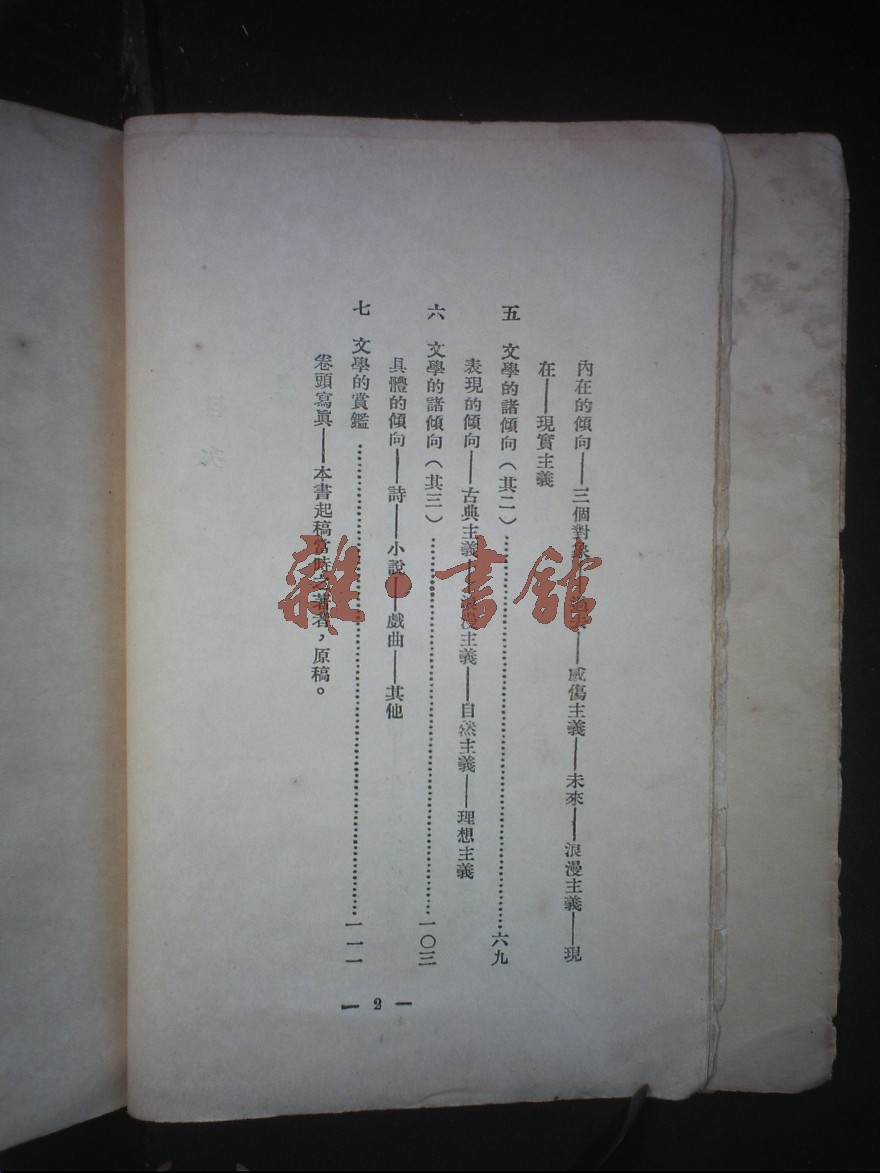 內在的傾向——三個對象——過去——感傷主義——未來——浪漫主義——現
在——現實主義
五　文學的諸傾向（其二）……六九
表現的傾向——古典主義——浪漫主義——自然主義——理想主義
六　文學的諸傾向（其三）……一〇三
具體的傾向——詩——小說——戲曲——其他
七　文學的賞鑑……一一一
卷頭寫眞——本書起稿當時之著者，原稿。
— 2 —
雜·書館